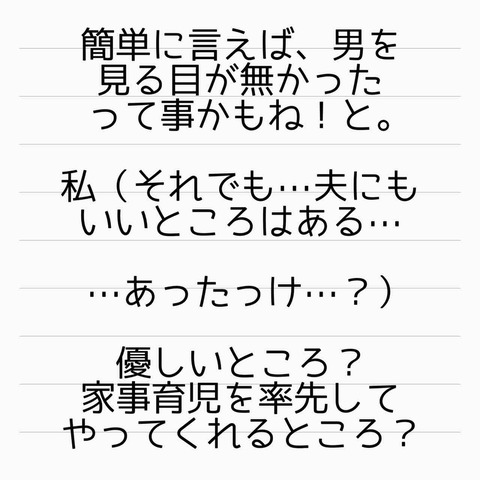 簡単に言えば、男を
見る目が無かった
って事かもね！と。
私（それでも…夫にも
いいところはある…
…あったっけ…？）
優しいところ？
家事育児を率先して
やってくれるところ？